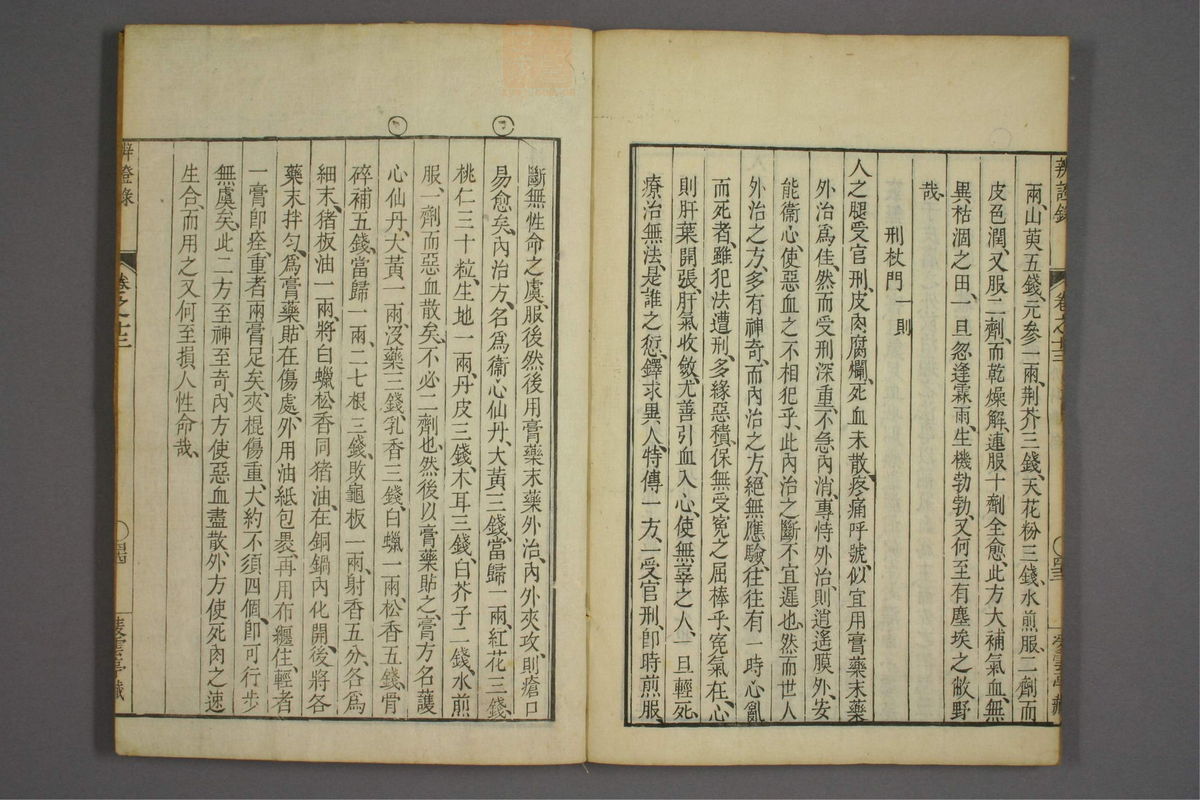 兩、山萸五錢、元參一兩、荆芥三錢、天花粉三錢、水煎服、二劑而
皮色潤、又服二劑、而乾燥解、連服十劑全愈、此方大補氣血、無
異枯涸之田、一旦忽逢霖雨、生機勃勃、又何至有塵埃之敝野
哉、
刑杖門一則
人之腿受官刑、皮肉腐爛、死血未散、疼痛呼號、似宜用膏藥末藥
外治為佳、然而受刑深重、不急內消、專恃外治、則逍遙膜外、安
能衞心、使惡血之不相犯乎、此內治之斷不宜遲也、然而世人
外治之方、多有神奇、而內治之方、絕無應驗、往往有一時心亂
而死者、雖犯法遭刑、多緣惡積、保無受寃之屈棒乎、寃氣在心、
則肝葉開張、肝氣收斂、尤善引血入心、使無辜之人、一旦輕死、
療治無法、是誰之愆、鐸求異人、特傳一方、一受官刑、卽時煎服、
辨證錄
卷之十三
斷無性命之虞、服後然後用膏藥末藥外治、內外夾攻、則瘡口
易愈矣、內治方、名為衞心仙丹、大黃三錢、當歸一兩、紅花三錢、
桃仁三十粒、生地一兩、丹皮三錢、木耳三錢、白芥子二錢、水煎
服、一劑而惡血散矣、不必二劑也、然後以膏藥貼之、膏方名護
心仙丹、大黃一兩、沒藥三錢、乳香三錢、白蠟一兩、松香五錢、骨
碎補五錢、當歸一兩、三七根三錢、敗龜板一兩、射香五分、各為
細末、猪板油一兩、將白蠟松香同猪油、在銅鍋內化開、後將各
藥末拌勻、為膏藥、貼在傷處、外用油紙包裹、再用布纏住、輕者
一膏卽痊、重者兩膏足矣、夾棍傷重、大約不須四個、卽可行步
無虞矣、此二方至神至奇、內方使惡血盡散、外方使死肉之速
生合、而用之又何至損人性命哉、
辨證錄
卷之十三